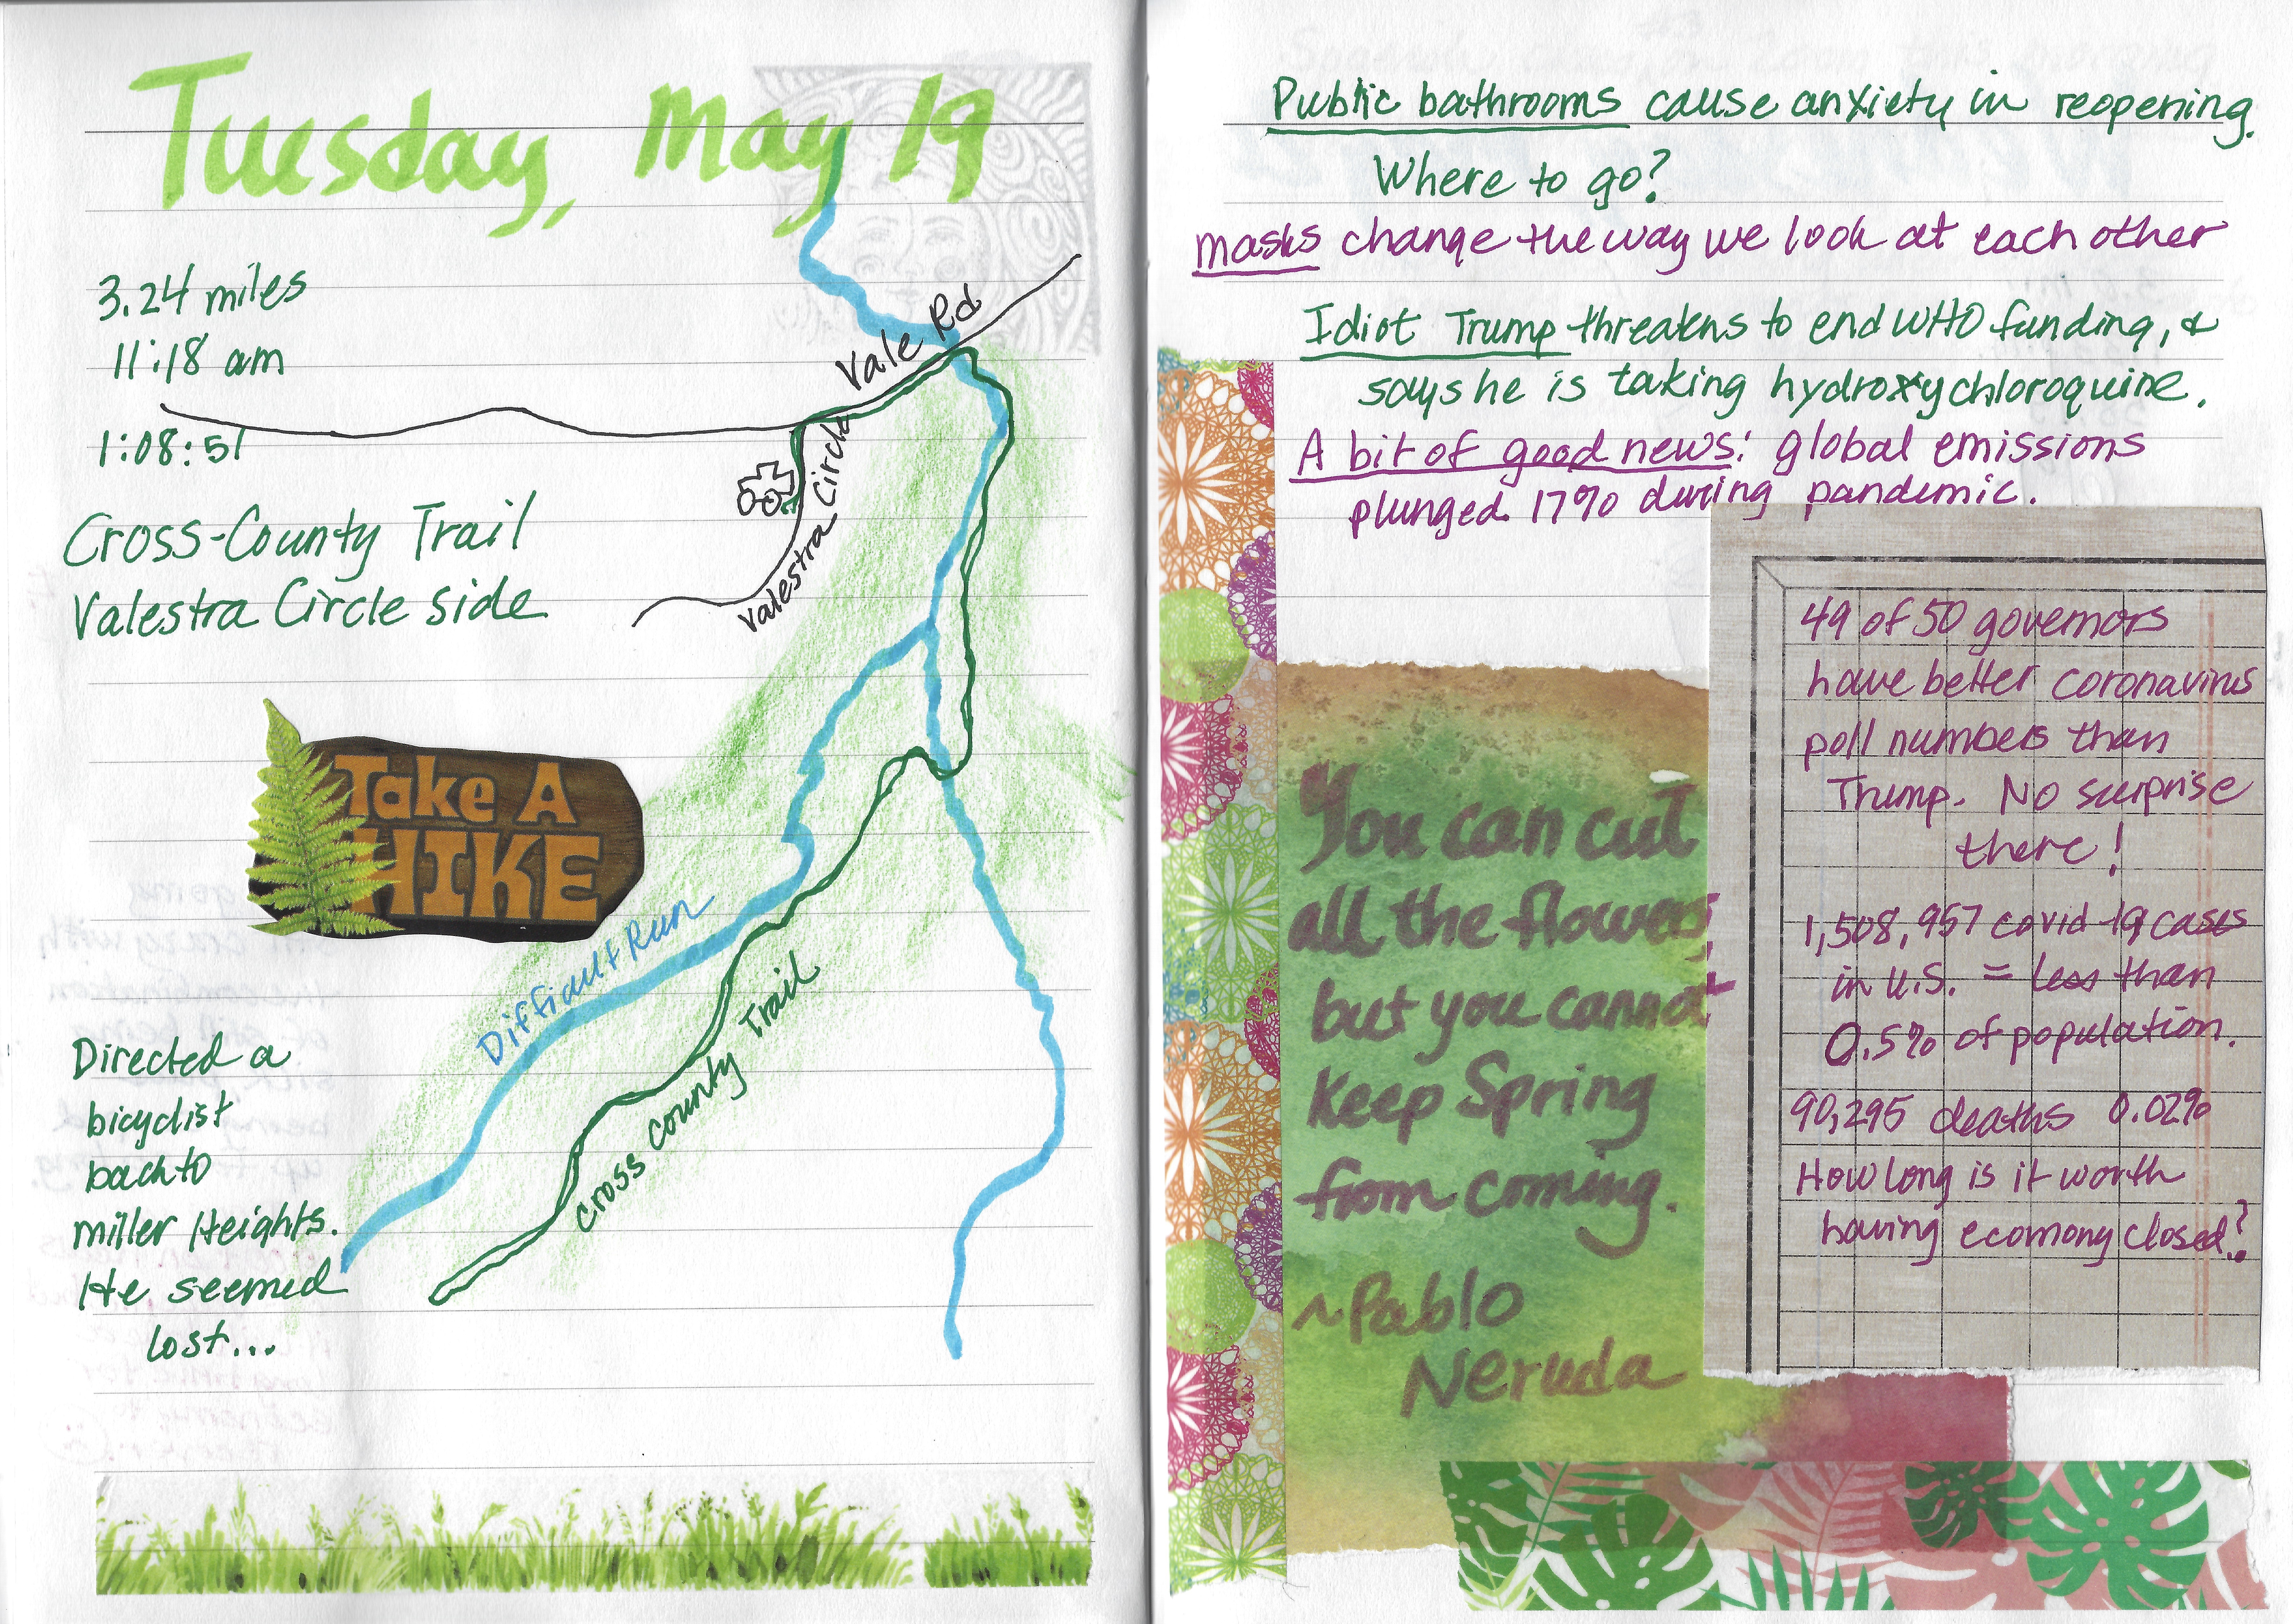 Tuesday, May 19
3.24 miles
11:18 am
1:08:51
Cross-County Trail
Valestra Circle side
Vale Rd
Valestra Circle
Take A
HIKE
Difficult Run
Cross County Trail
Directed a
bicyclist
back to
Miller Heights.
He seemed
lost...
Public bathrooms cause anxiety in reopening.
Where to go?
Masks change the way we look at each other
Idiot Trump threatens to end WHO funding, &
says he is taking hydroxychloroquine.
A bit of good news: global emissions
plunged 17% during pandemic.
You can cut
all the flowers,
but you cannot
Keep Spring
from coming.
~Pablo
Neruda
49 of 50 governors
have better coronavirus
poll numbers than
Trump. No surprise
there!
1,508,957 covid-19 cases
in U.S. = less than
0.5% of population.
90,295 deaths 0.02%
How long is it worth
having ecomony closed?